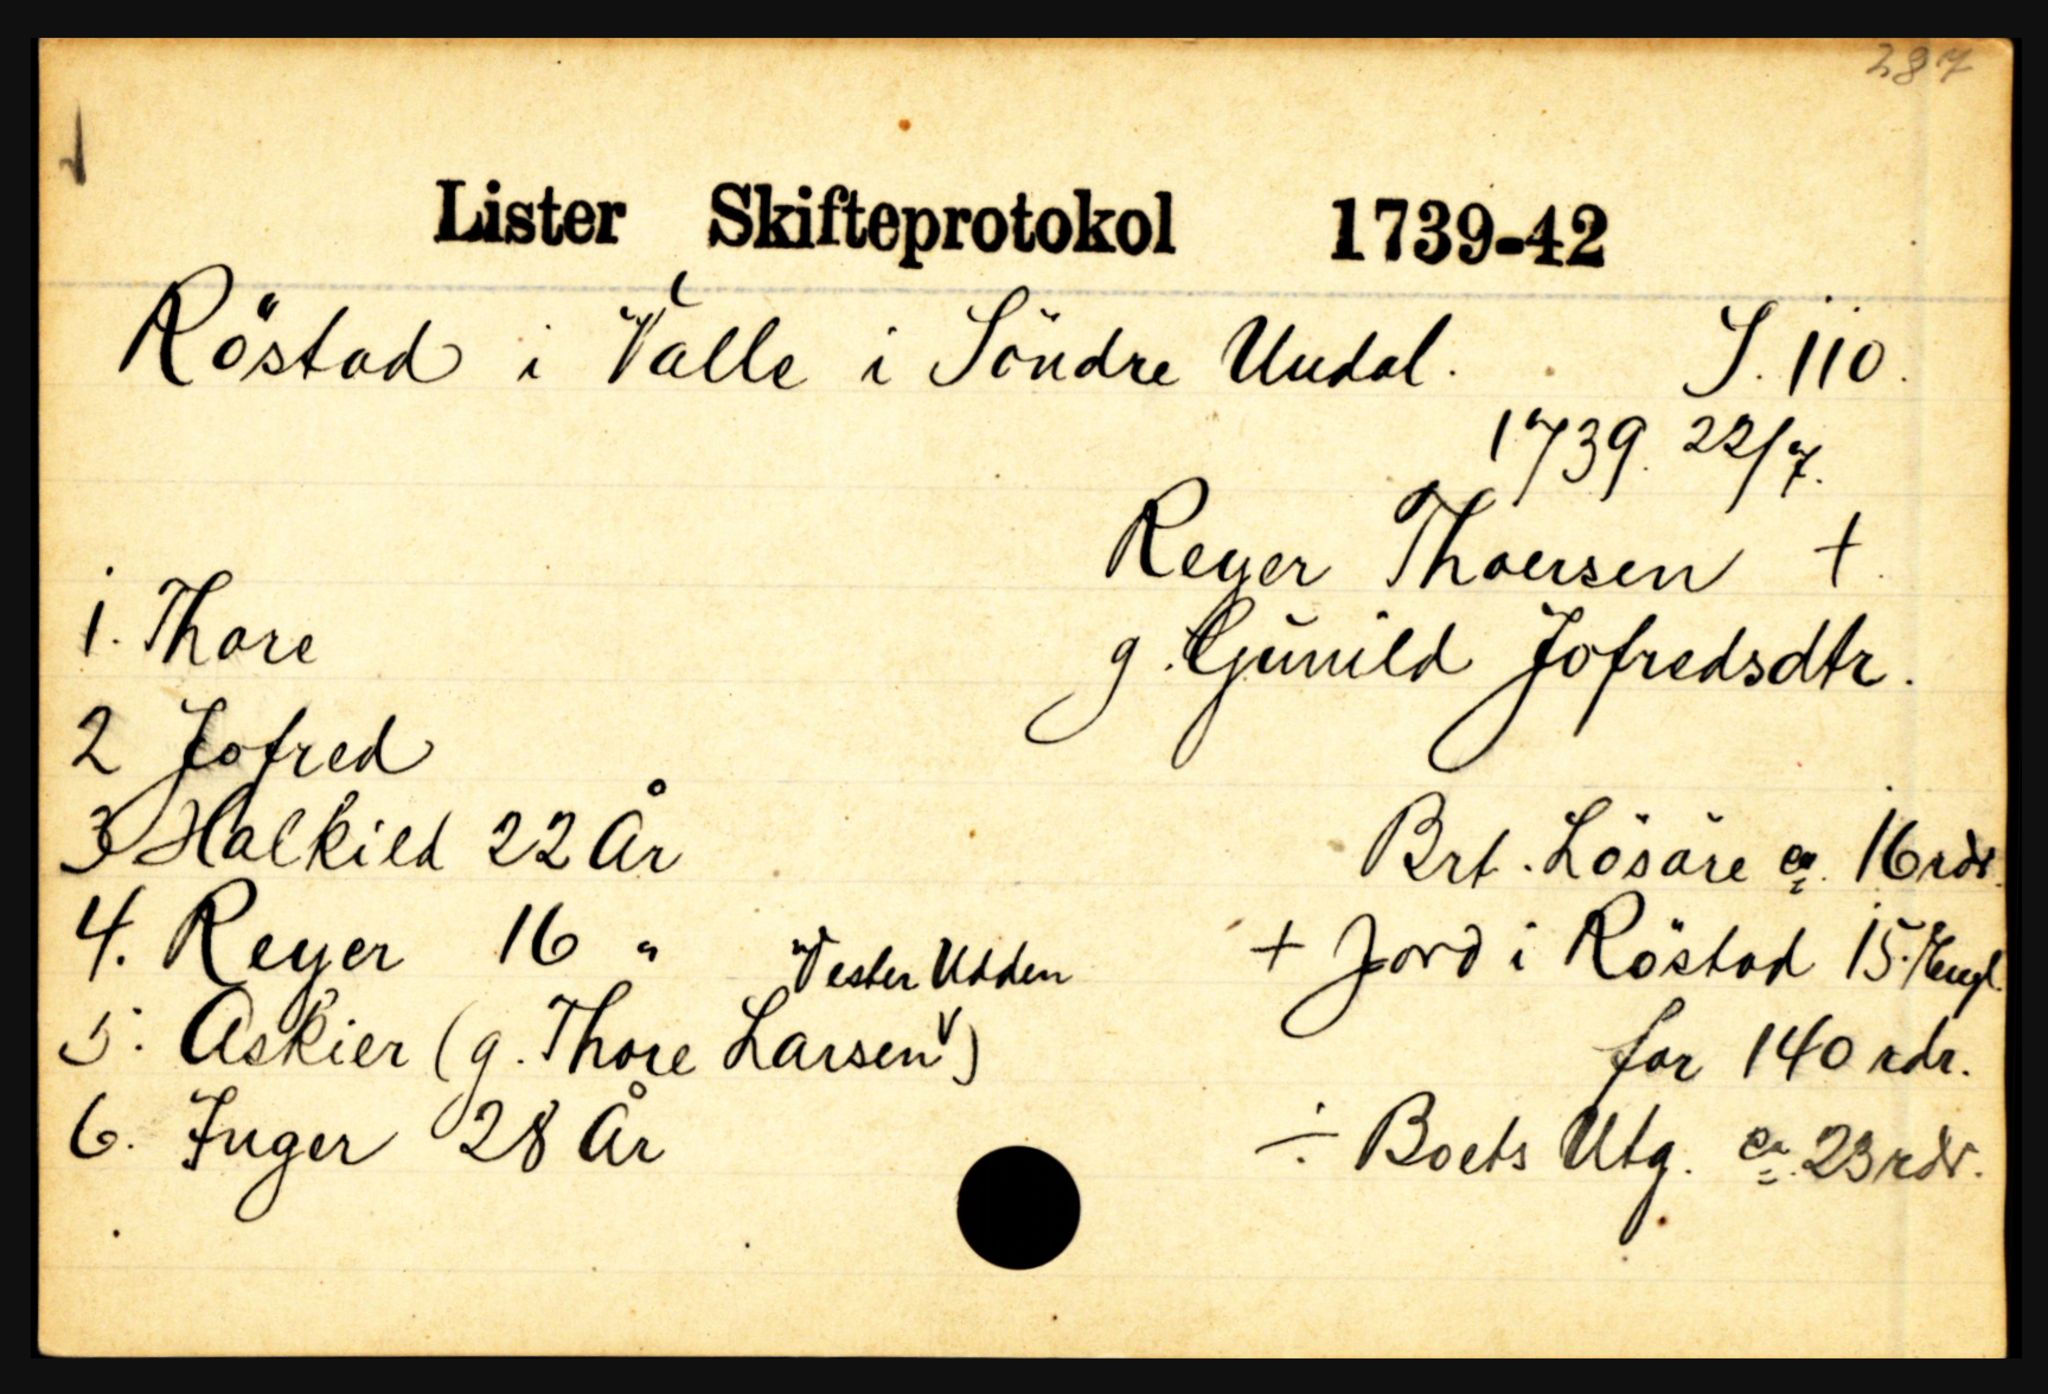 287
Lister Skifteprotokol 1739-42
Röstad i Valle i Söndre Undal. S. 110.
1739. 22/7.
Reyer Thoersen +.
g. Gunild Jofredsdtr.
1. Thore
2 Jofred
3 Halkild 22 År
4. Reyer 16 "
Vester Udden
5. Askier (g. Thore Larsen V)
6. Inger 28 År
Brt. Lösöre ca. 16 rdr.
+ Jord i Röstad 15. Engl.
for 140 rdr.
÷ Boets Utg. ca. 23 rdr.